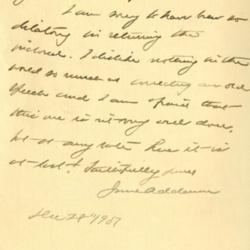 I am sorry to have been so
dilatory in returning the
inclosed. I dislike nothing in the
world so much as correcting an old
speech and I am afraid that
this one is not very well done,
but at any rate here it is
at last. Faithfully yours
Jane Addams
Dec 28" 1907